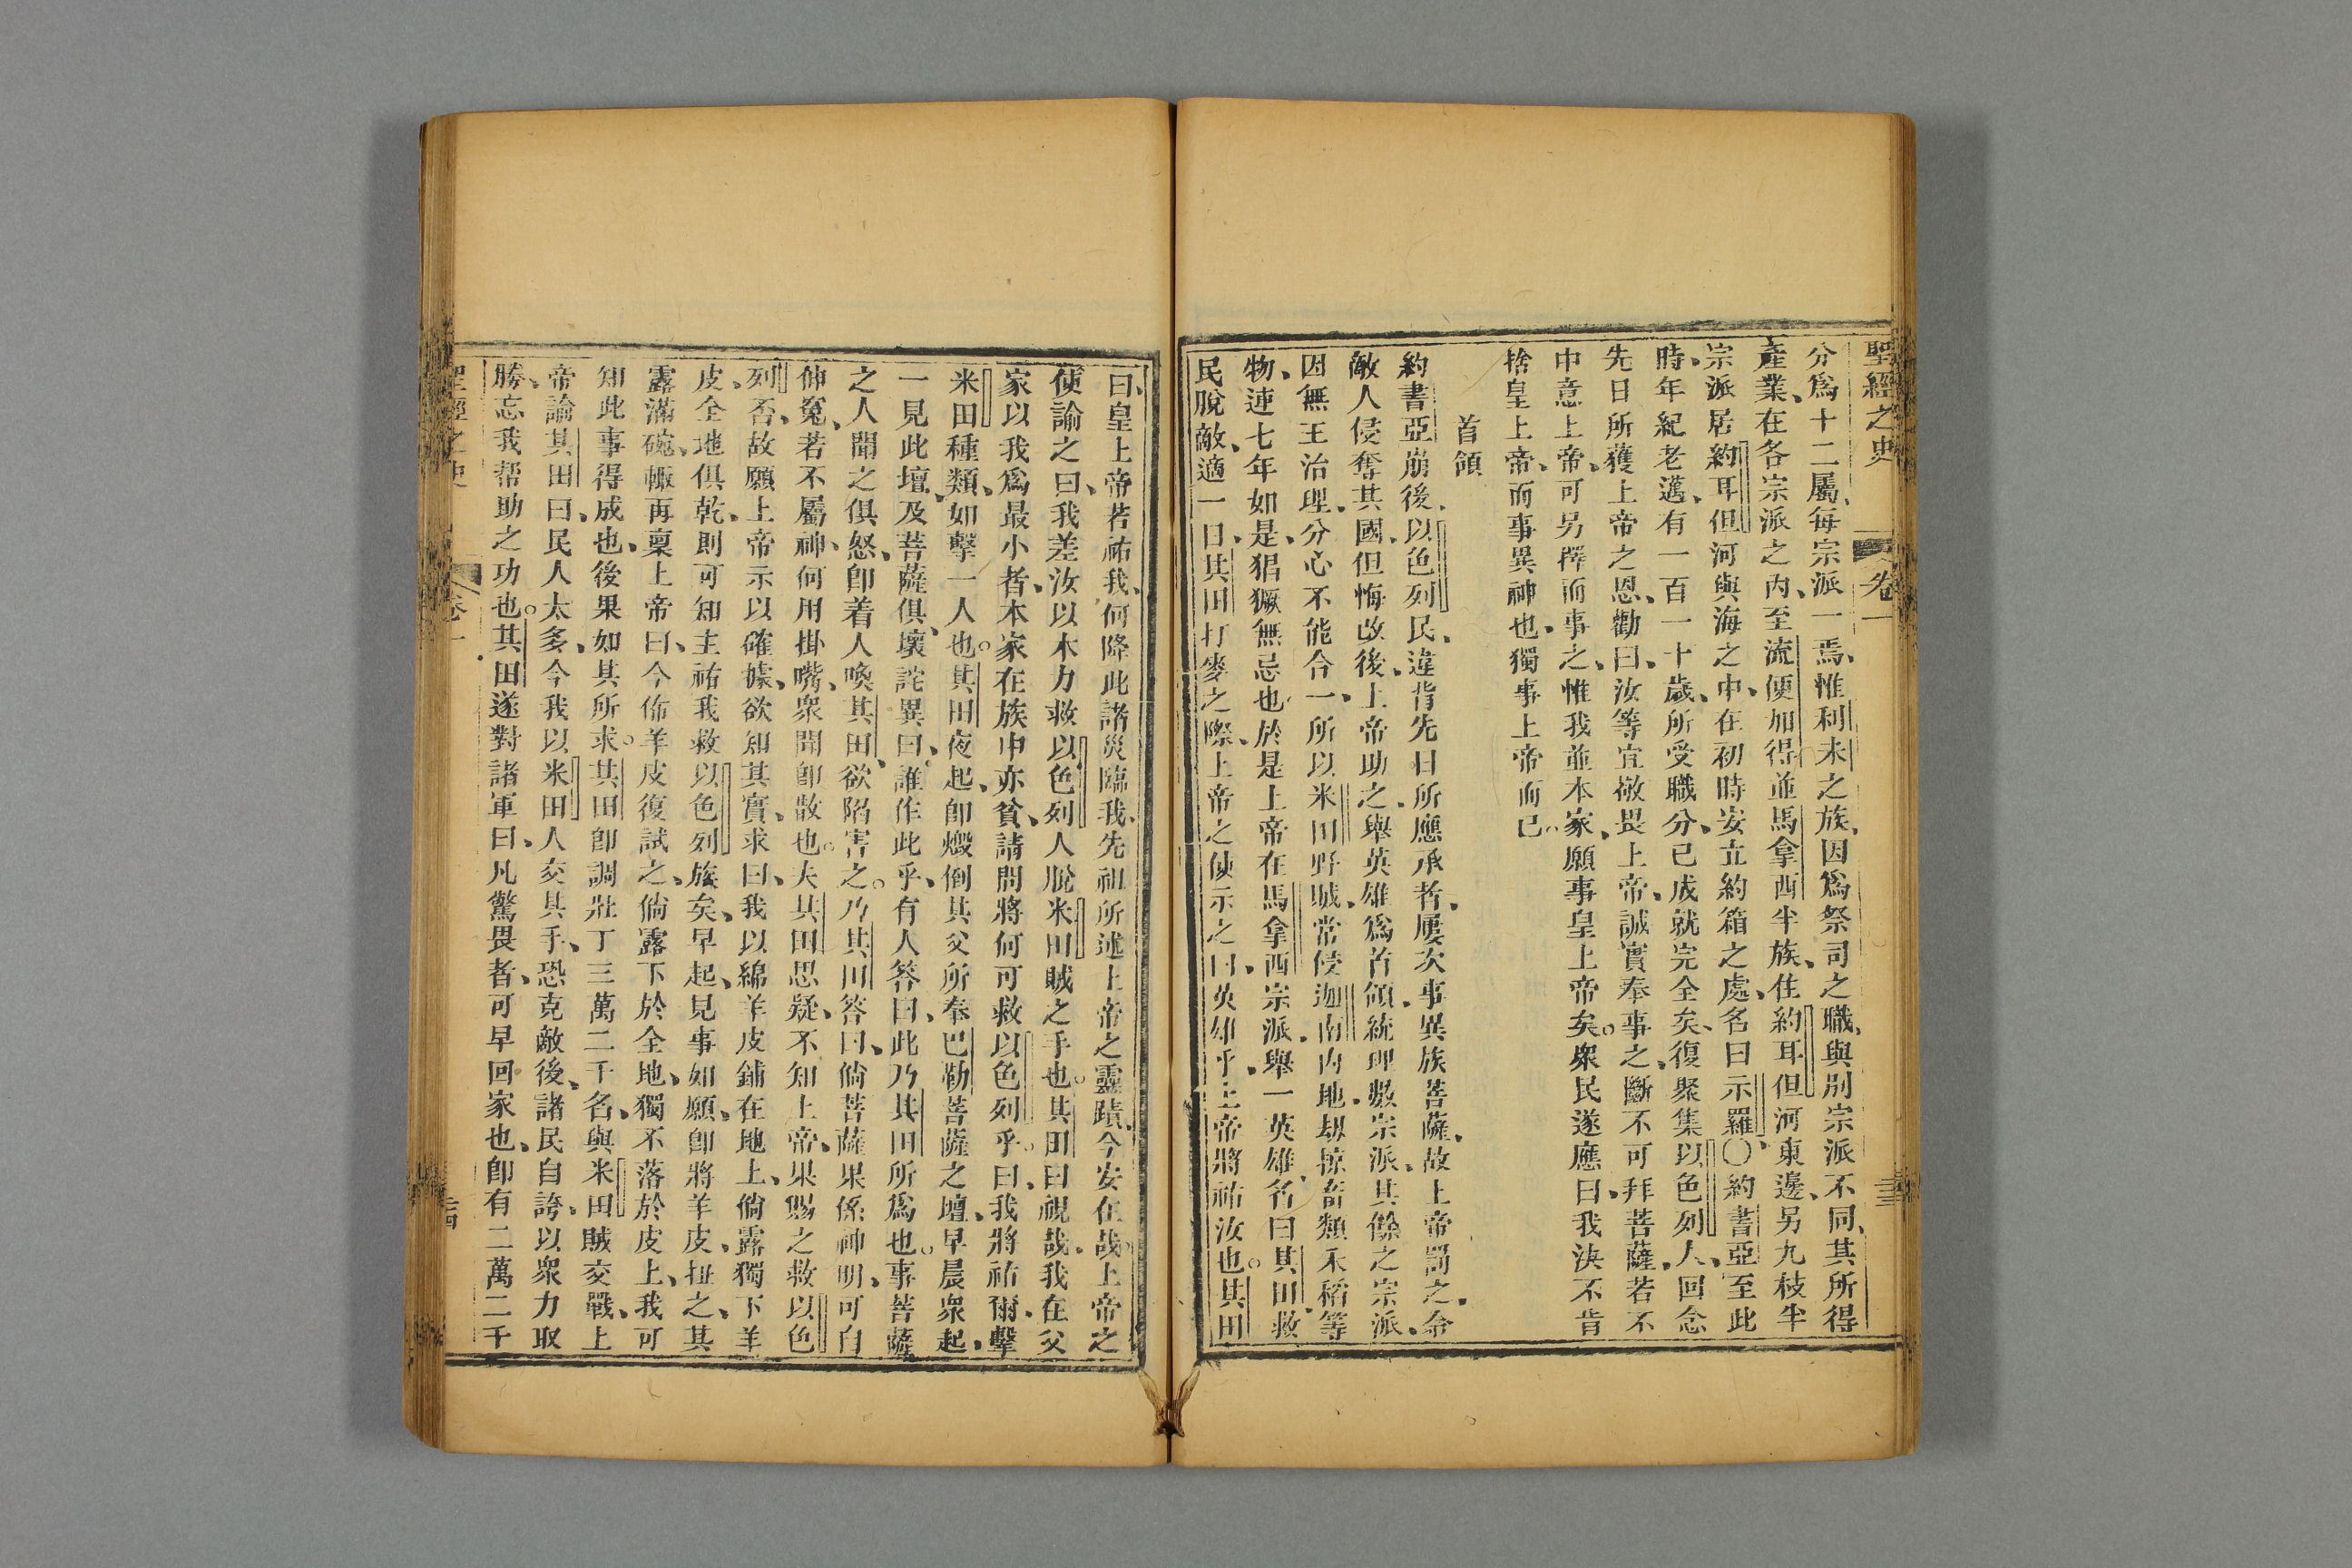 聖經之史 卷一 二十三
分爲十二屬、每宗派一焉、惟利未之族、因爲祭司之職、與別宗派不同、其所得
產業、在各宗派之內、至流便加得並馬拿西半族、住約耳但河東邊、另九枝半
宗派居約耳但河與海之中、在初時安立約箱之處、名曰示羅〇約書亞至此
時、年紀老邁、有一百一十歲、所受職分、已成就完全矣、復聚集以色列人、回念
先日所獲上帝之恩、勸曰、汝等宜敬畏上帝、誠實奉事之、斷不可拜菩薩、若不
中意上帝、可另擇而事之、惟我並本家、願事皇上帝矣。衆民遂應曰、我決不肯
捨皇上帝、而事異神也、獨事上帝而已。
首領
約書亞崩後、以色列民、違背先日所應承者、屢次事異族菩薩、故上帝罰之、命
敵人侵奪其國、但悔改後、上帝助之、舉英雄爲首領、統理數宗派、其餘之宗派、
因無王治理、分心不能合一、所以米田野賊、常侵迦南內地、劫掠畜類禾稻等
物、連七年如是、猖獗無忌也、於是上帝在馬拿西宗派、舉一英雄、名曰其田、救
民脫敵、適一日、其田打麥之際、上帝之使示之曰、英雄乎、上帝將祐汝也。其田
曰、皇上帝若祐我、何降此諸災臨我、先祖所述上帝之靈蹟、今安在哉、上帝之
使諭之曰、我差汝以本力救以色列人脫米田賊之手也。其田曰視哉、我在父
家以我爲最小者、本家在族中亦貧、請問將何可救以色列乎。曰、我將祐爾、擊
米田種類、如擊一人也。其田夜起、卽燬倒其父所奉巴勒菩薩之壇、早晨衆起、
一見此壇、及菩薩俱壞、詫異曰、誰作此乎、有人答曰、此乃其田所爲也。事菩薩
之人聞之俱怒、卽着人喚其田、欲陷害之。乃其田答曰、倘菩薩果係神明、可自
伸冤、若不屬神、何用掛嘴、衆聞卽散也。夫其田思疑、不知上帝、果賜之救以色
列否、故願上帝示以確據、欲知其實、求曰、我以綿羊皮鋪在地上、倘露獨下羊
皮、全地俱乾、則可知主祐我救以色列族矣、早起、見事如願、卽將羊皮、扭之、其
露滿碗、輙再稟上帝曰、今佈羊皮復試之、倘露下於全地、獨不落於皮上、我可
知此事得成也、後果如其所求。其田卽調壯丁三萬二千名、與米田賊交戰、上
帝諭其田曰、民人太多、今我以米田人交其手、恐克敵後、諸民自誇、以衆力取
勝、忘我帮助之功也。其田遂對諸軍曰、凡驚畏者、可早回家也、卽有二萬二千
聖經之史 卷一 二十四